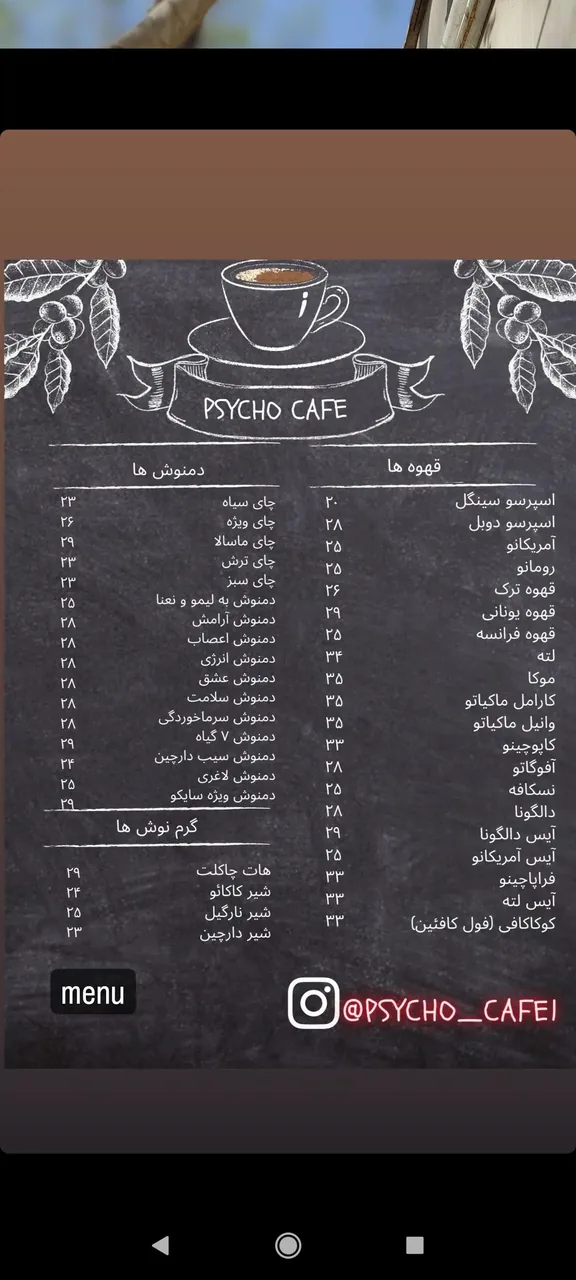 PSYCHO CAFE
قهوه ها
اسپرسو سینگل ۲۰
اسپرسو دوبل ۲۸
آمریکانو ۲۵
رومانو ۲۵
قهوه ترک ۲۶
قهوه یونانی ۲۹
قهوه فرانسه ۲۵
لته ۳۴
موکا ۳۵
کارامل ماکیاتو ۳۵
وانیل ماکیاتو ۳۵
کاپوچینو ۳۳
آفوگاتو ۲۸
نسکافه ۲۵
دالگونا ۲۸
آیس دالگونا ۲۹
آیس آمریکانو ۲۵
فراپاچینو ۳۳
آیس لته ۳۳
کوکاکافی (فول کافئین) ۳۳
دمنوش ها
چای سیاه ۲۳
چای ویژه ۲۶
چای ماسالا ۲۹
چای ترش ۲۳
چای سبز ۲۳
دمنوش به لیمو و نعنا ۲۵
دمنوش آرامش ۲۸
دمنوش اعصاب ۲۸
دمنوش انرژی ۲۸
دمنوش عشق ۲۸
دمنوش سلامت ۲۸
دمنوش سرماخوردگی ۲۸
دمنوش ۷ گیاه ۲۹
دمنوش سیب دارچین ۲۴
دمنوش لاغری ۲۵
دمنوش ویژه سایکو ۲۹
گرم نوش ها
هات چاکلت ۲۹
شیر کاکائو ۲۴
شیر نارگیل ۲۵
شیر دارچین ۲۳
menu
@PSYCHO_CAFE1